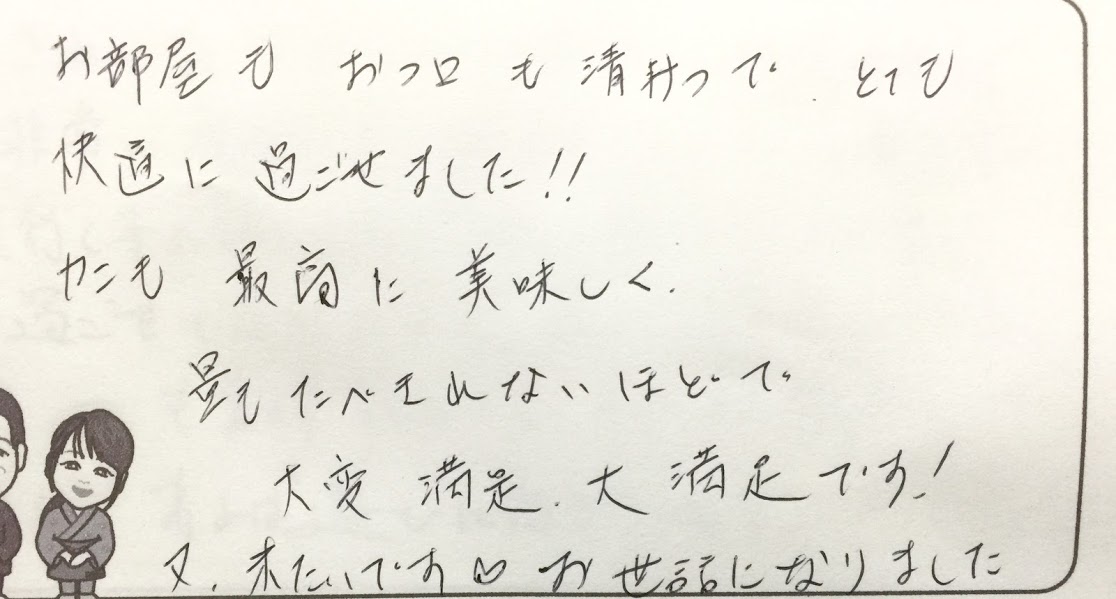 お部屋も おフロ も 清けつで、とても
快適に 過ごせました!!
カニも 最高に 美味しく、
量も たべきれないほどで
大変 満足、大満足です!
又、来たいです♡ お世話になりました